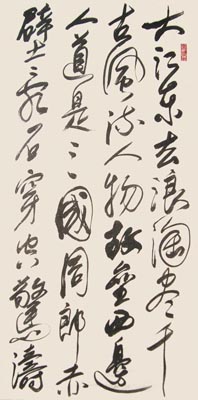 大江东去浪淘尽千
古風流人物故壘西邊
人道是三國周郎赤
壁乱石穿空驚濤